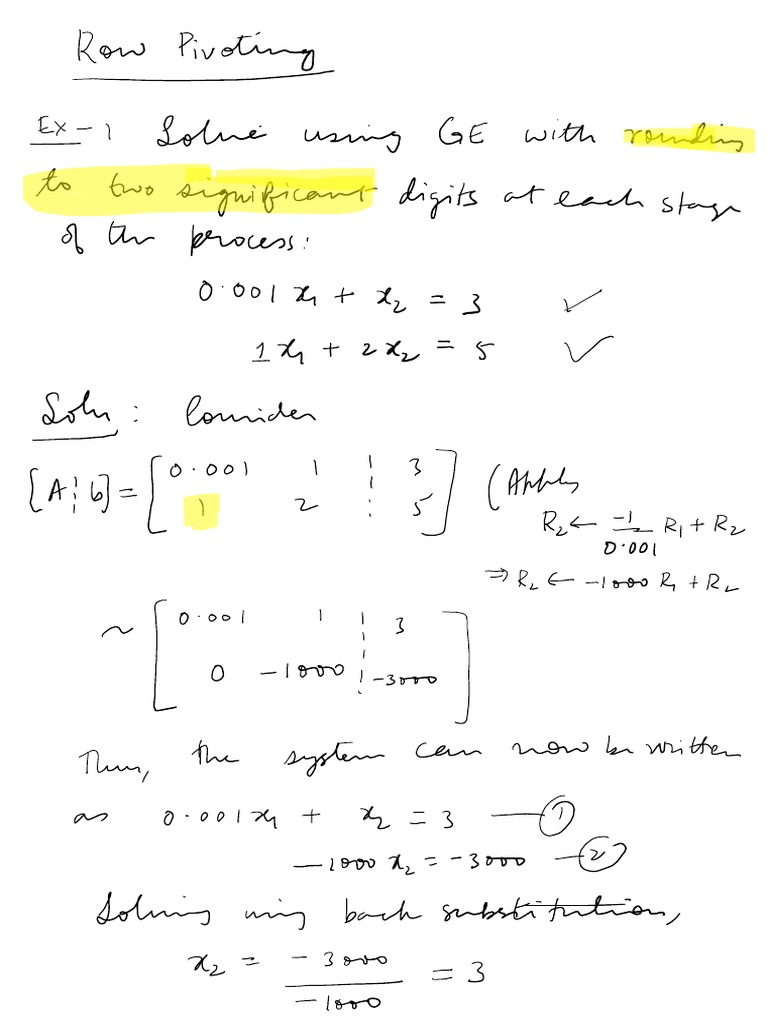 Row Pivoting
Ex-1 Solve using GE with rounding
to two significant digits at each stage
of the process:
0.001 x₁ + x₂ = 3 ✓
1x₁ + 2x₂ = 5 ✓
Soln: Consider
[A ¦ b] = [0.001 1 ¦ 3
1 2 ¦ 5] (Apply
R₂ ← -1/0.001 R₁ + R₂
⇒ R₂ ← -1000 R₁ + R₂
~ [0.001 1 ¦ 3
0 -1000 ¦ -3000]
Thus, the system can now be written
as 0.001x₁ + x₂ = 3 — ①
-1000 x₂ = -3000 — ②
Solving using back substitution,
x₂ = -3000/-1000 = 3